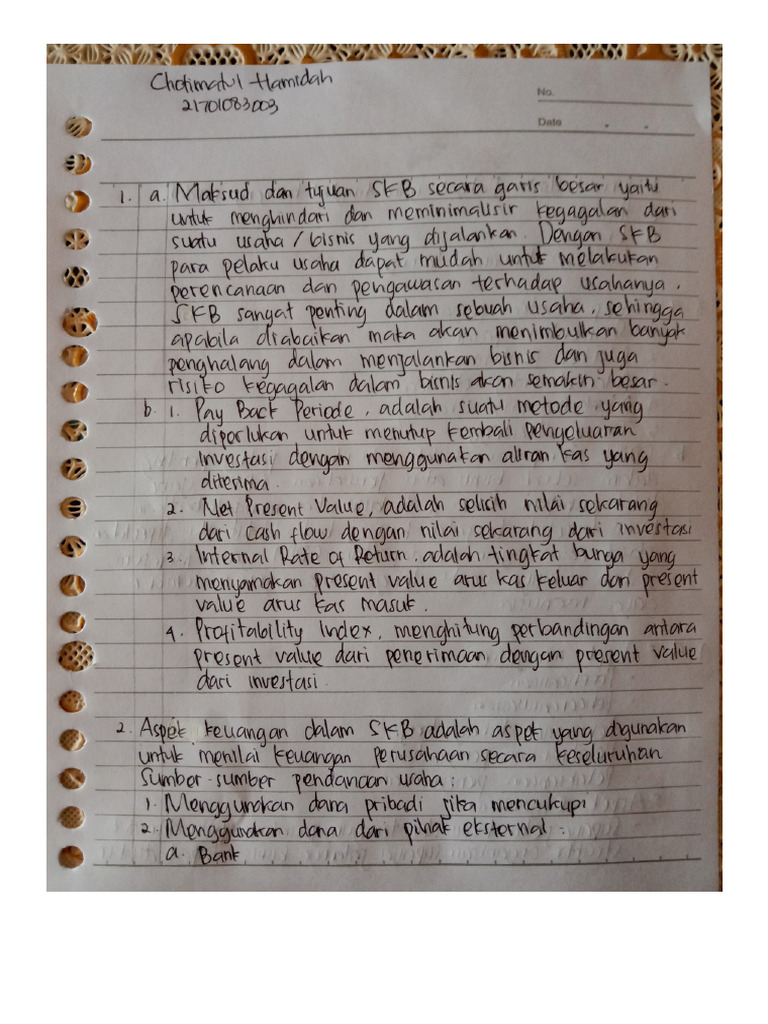 Chotimatul Hamidah
21701083003
No.
Date
1. a. Maksud dan tujuan SKB secara garis besar yaitu
untuk menghindari dan meminimalisir kegagalan dari
suatu usaha / bisnis yang dijalankan. Dengan SKB
para pelaku usaha dapat mudah untuk melakukan
perencanaan dan pengawasan terhadap usahanya.
SKB sangat penting dalam sebuah usaha, sehingga
apabila diabaikan maka akan menimbulkan banyak
penghalang dalam menjalankan bisnis dan juga
risiko kegagalan dalam bisnis akan semakin besar.
b. 1. Pay Back Periode, adalah suatu metode yang
diperlukan untuk menutup kembali pengeluaran
investasi dengan menggunakan aliran kas yang
diterima.
2. Net Present Value, adalah selisih nilai sekarang
dari cash flow dengan nilai sekarang dari investasi
3. Internal Rate of Return, adalah tingkat bunga yang
menyamakan present value arus kas keluar dan present
value arus kas masuk.
4. Profitability Index, menghitung perbandingan antara
present value dari penerimaan dengan present value
dari investasi.
2. Aspek keuangan dalam SKB adalah aspek yang digunakan
untuk menilai keuangan perusahaan secara keseluruhan
Sumber-sumber pendanaan usaha :
1. Menggunakan dana pribadi jika mencukupi
2. Menggunakan dana dari pihak eksternal :
a. Bank